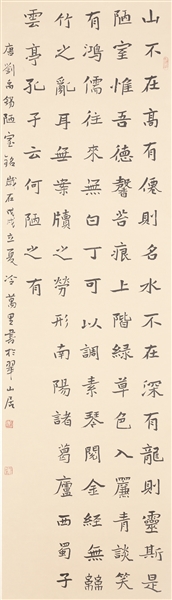 山不在高有僊則名水不在深有龍則靈斯是
陋室惟吾德馨苔痕上階緑草色入簾青談笑
有鴻儒往來無白丁可以調素琴閲金經無絲
竹之亂耳無案牘之勞形南陽諸葛廬西蜀子
雲亭孔子云何陋之有
唐劉禹錫陋室銘歲在戊戌立夏冷萬里書於翠山居